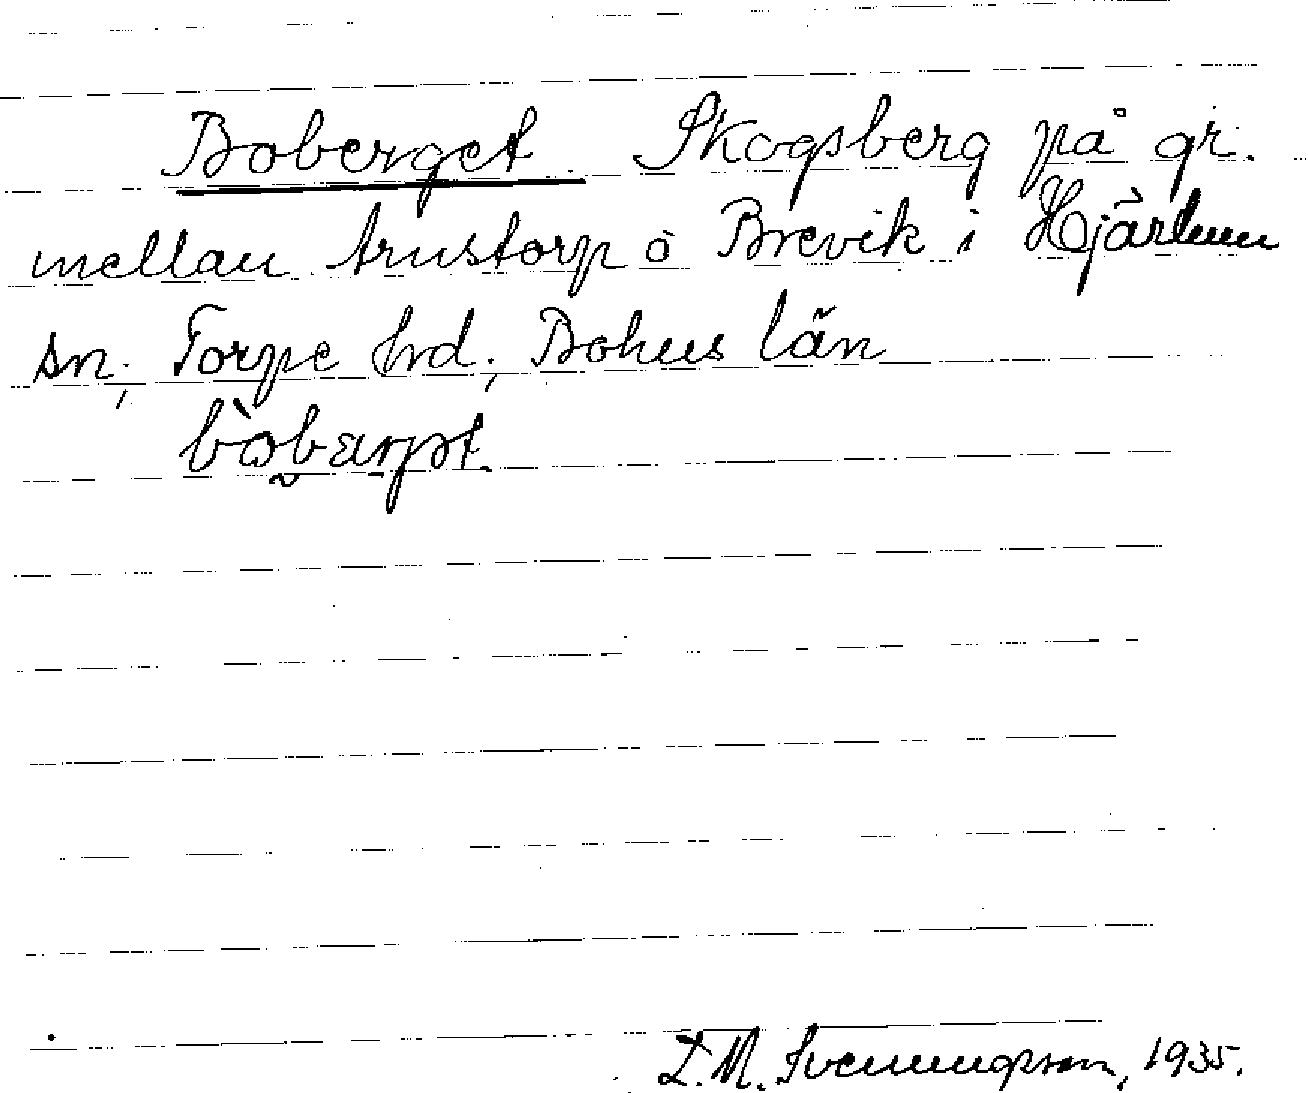 Boberget Skogsberg på gr.
mellan Arustorp o Brevik i Hjärtum
sn, Torpe hrd, Bohus län
bòbærgət
L. M. Svenungsson, 1935.